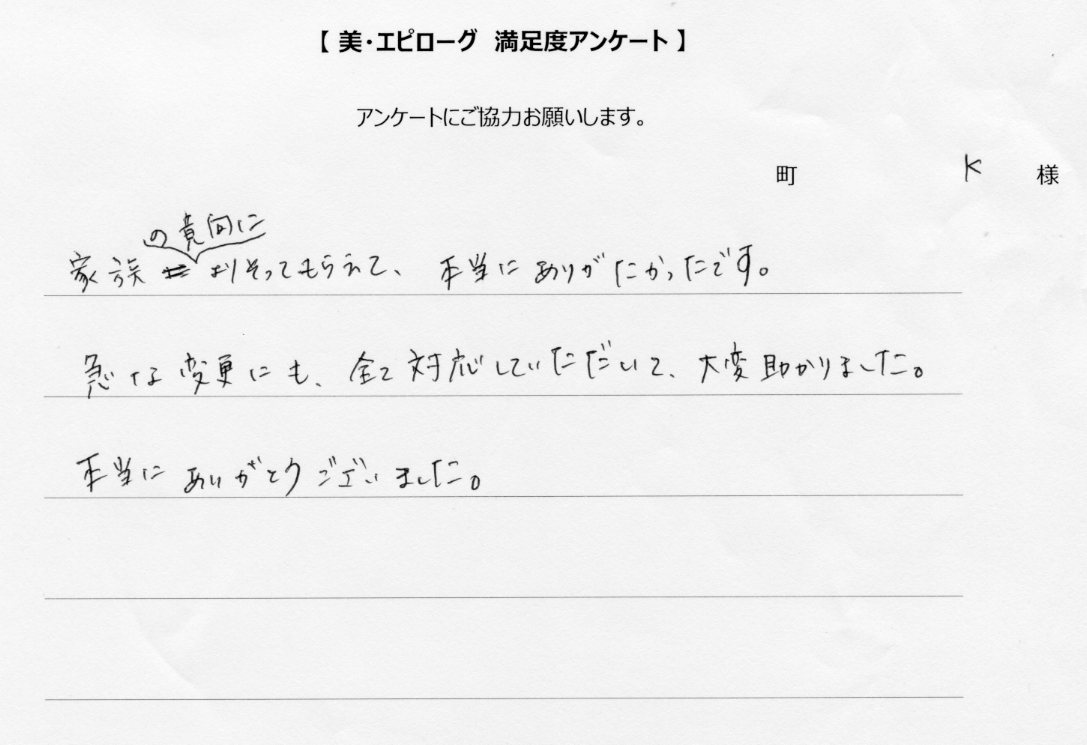 【 美・エピローグ 満足度アンケート 】
アンケートにご協力お願いします。
町 K 様
家族の意向によりそってもらえて、本当にありがたかったです。
急な変更にも、全て対応していただいて、大変助かりました。
本当にありがとうございました。